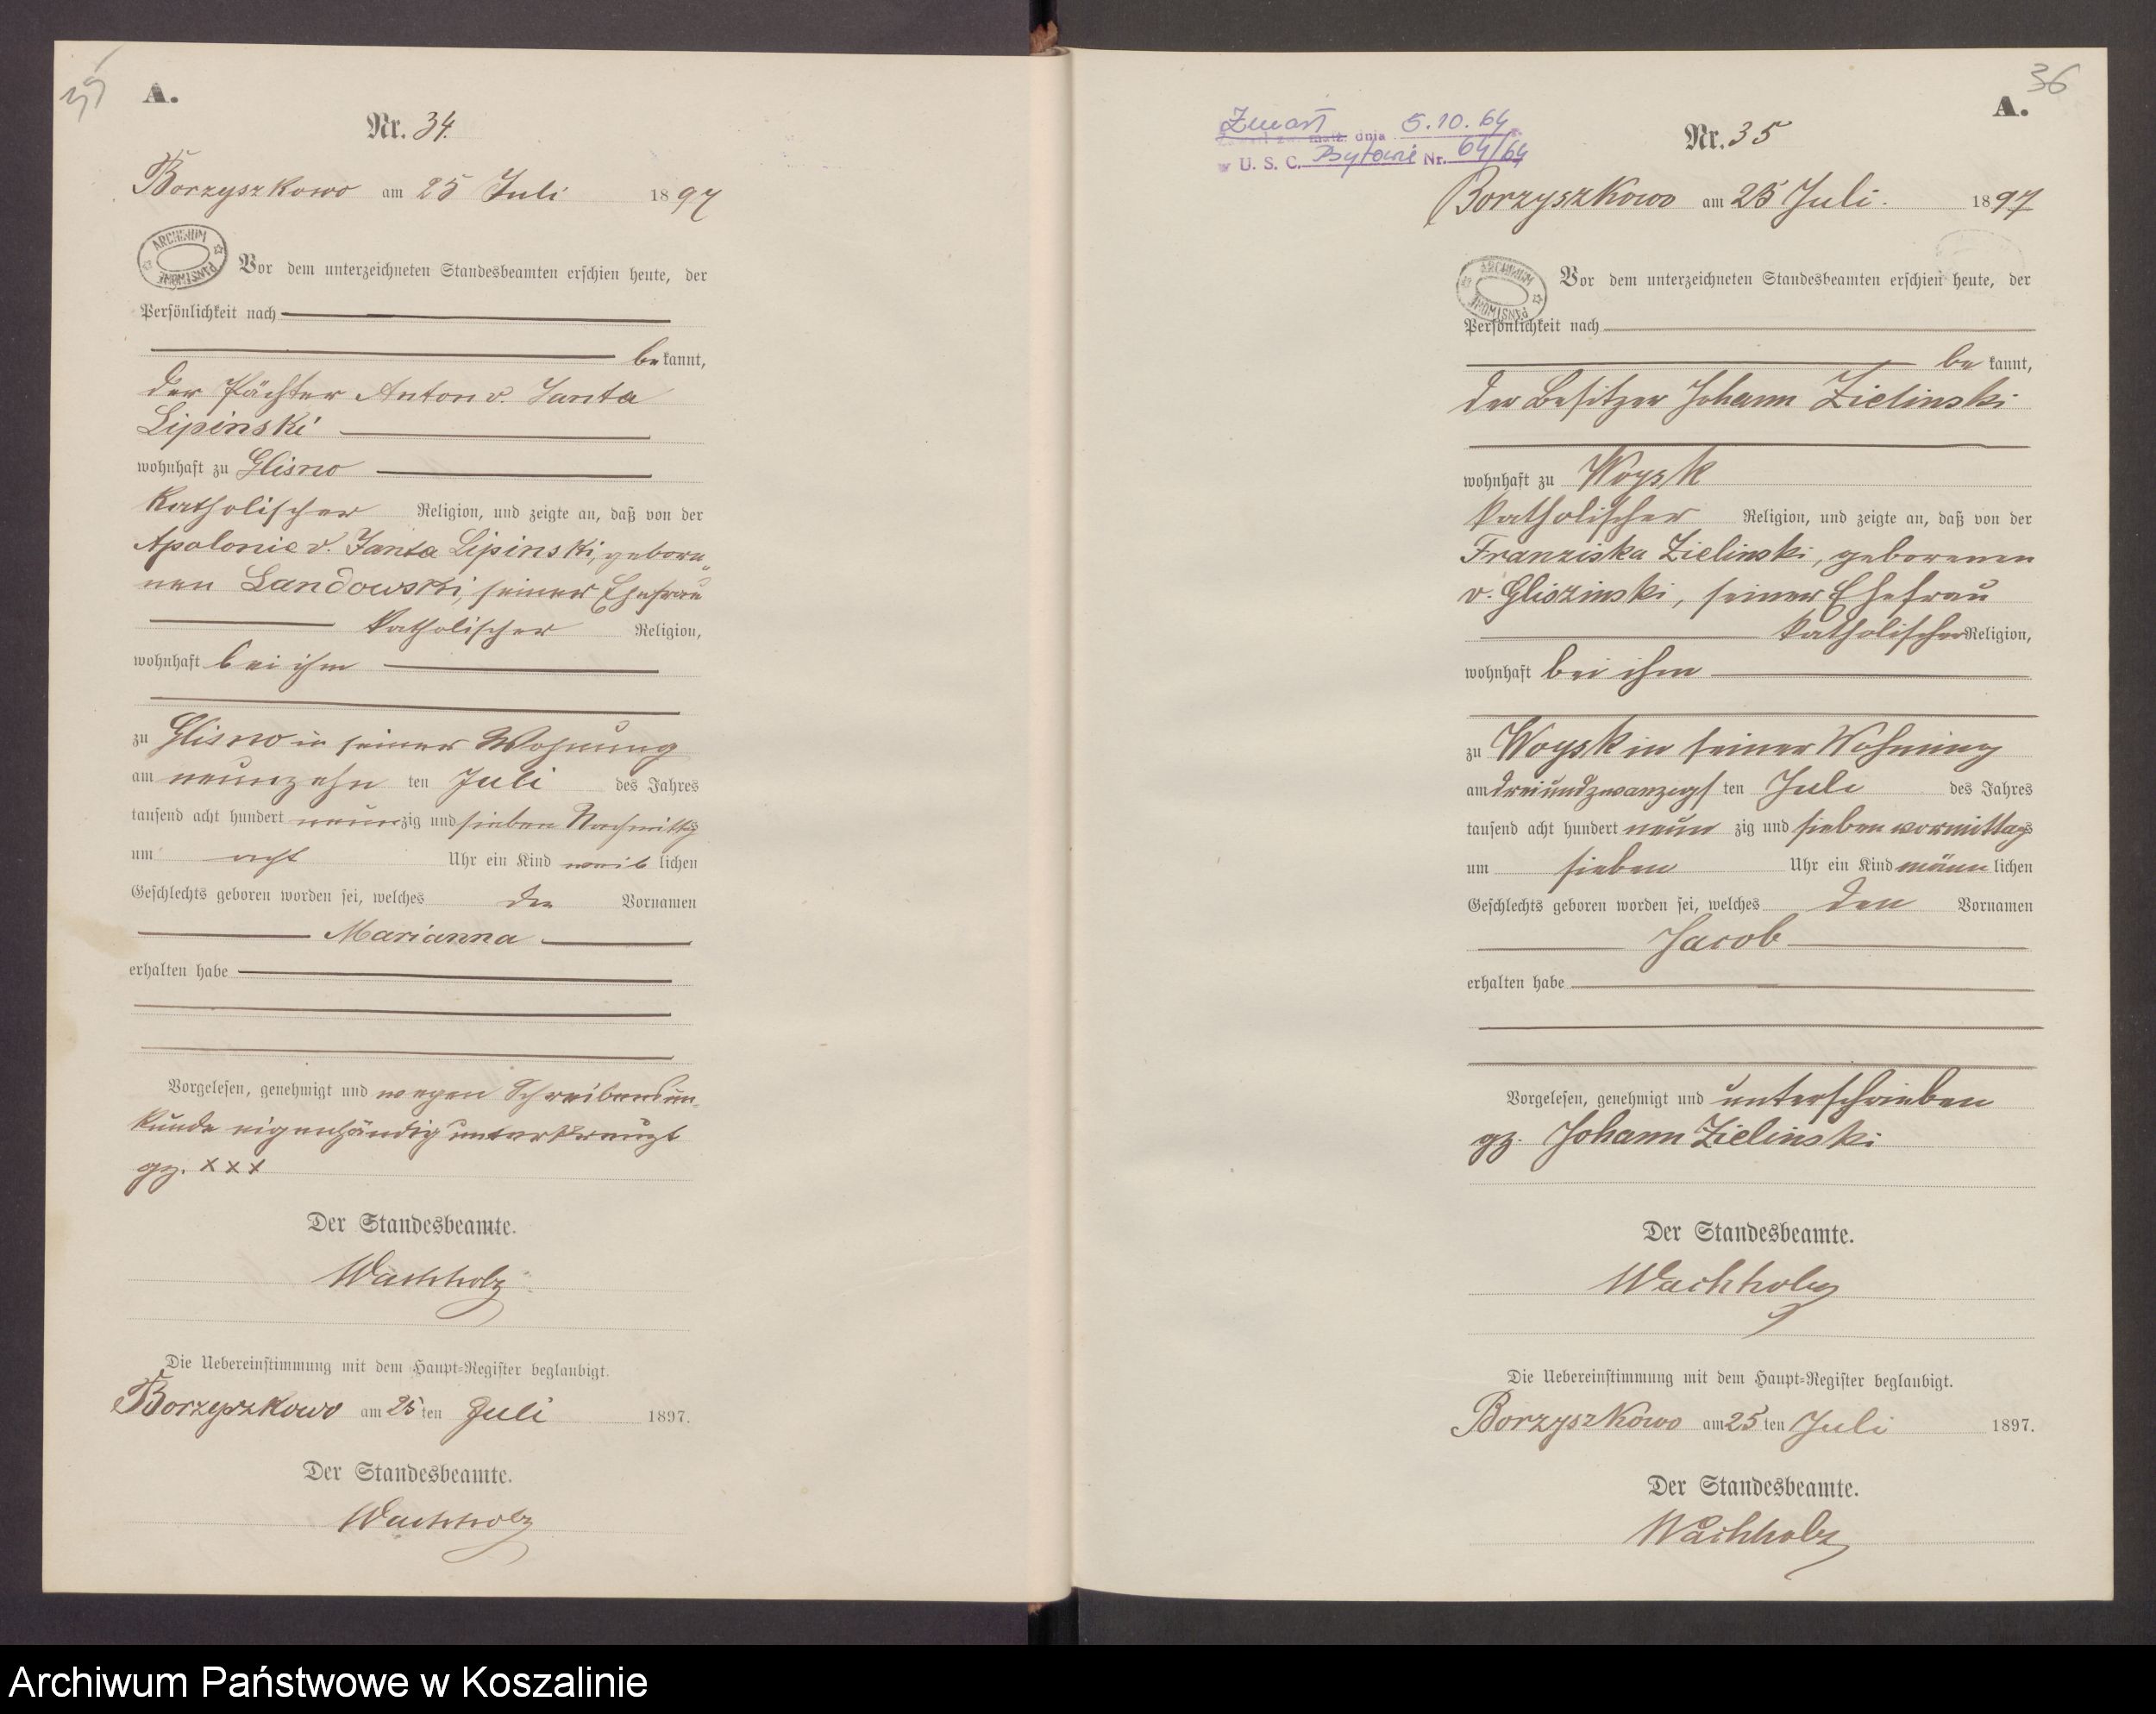 35
A.
Nr. 34.
Borzyszkowo am 25 Juli 1897
ARCHIWUM PAŃSTWOWE
Vor dem unterzeichneten Standesbeamten erschien heute, der
Persönlichkeit nach
bekannt,
der Pächter Anton v. Janta
Lipinski
wohnhaft zu Glisno
katholischer Religion, und zeigte an, daß von der
Apolonie v. Janta Lipinski, gebore„
nen Landowski, seiner Ehefrau
katholischer Religion,
wohnhaft bei ihm
zu Glisno in seiner Wohnung
am neunzehn ten Juli des Jahres
tausend acht hundert neunzig und sieben Nachmittags
um acht Uhr ein Kind weiblichen
Geschlechts geboren worden sei, welches den Vornamen
Marianna
erhalten habe
Vorgelesen, genehmigt und wegen Schreibensun-
kunde eigenhändig unterkreuzt
gz. xxx
Der Standesbeamte.
Wachholz
Die Uebereinstimmung mit dem Haupt-Register beglaubigt.
Borzyszkowo am 25ten Juli 1897.
Der Standesbeamte.
Wachholz
36
A.
Zmarł dnia 5.10.64
w U. S. C. Bytowie Nr. 64/64
Nr. 35
Borzyszkowo am 25 Juli. 1897
ARCHIWUM PAŃSTWOWE
Vor dem unterzeichneten Standesbeamten erschien heute, der
Persönlichkeit nach
bekannt,
der Besitzer Johann Zielinski
wohnhaft zu Woysk
katholischer Religion, und zeigte an, daß von der
Franziska Zielinski, geborenen
v. Gliszinski, seiner Ehefrau
katholischer Religion,
wohnhaft bei ihm
zu Woysk in seiner Wohnung
am dreiundzwanzigsten Juli des Jahres
tausend acht hundert neunzig und sieben vormittags
um sieben Uhr ein Kind männlichen
Geschlechts geboren worden sei, welches den Vornamen
Jacob
erhalten habe
Vorgelesen, genehmigt und unterschrieben
gz. Johann Zielinski
Der Standesbeamte.
Wachholz
Die Uebereinstimmung mit dem Haupt-Register beglaubigt.
Borzyszkowo am 25ten Juli 1897.
Der Standesbeamte.
Wachholz
Archiwum Państwowe w Koszalinie